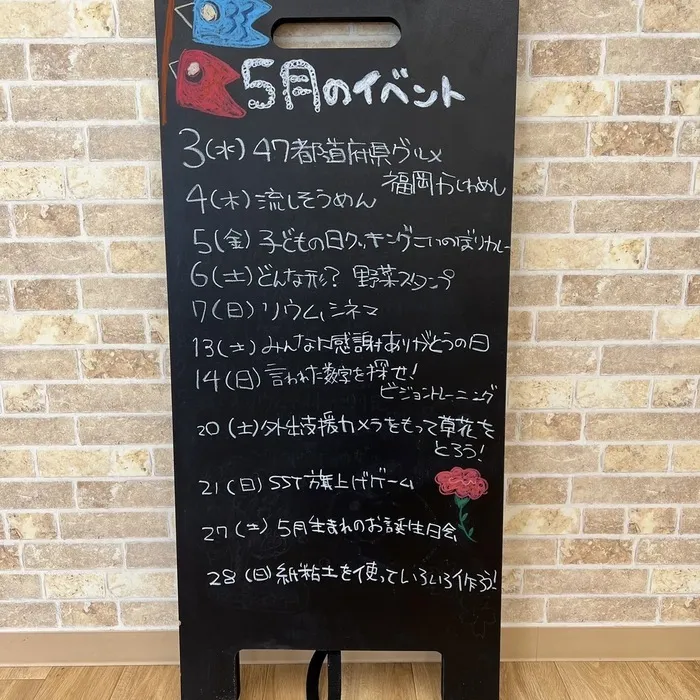 5月のイベント
3(水) 47都道府県グルメ
福岡かしわめし
4(木) 流しそうめん
5(金) 子どもの日クッキングこいのぼりカレー
6(土) どんな形? 野菜スタンプ
7(日) リウムシネマ
13(土) みんなに感謝ありがとうの日
14(日) 言われた数字を探せ!
ビジョントレーニング
20(土) 外出支援カメラをもって草花を
とろう!
21(日) SST旗上げゲーム
27(土) 5月生まれのお誕生日会
28(日) 紙粘土を使っていろいろ作ろう!